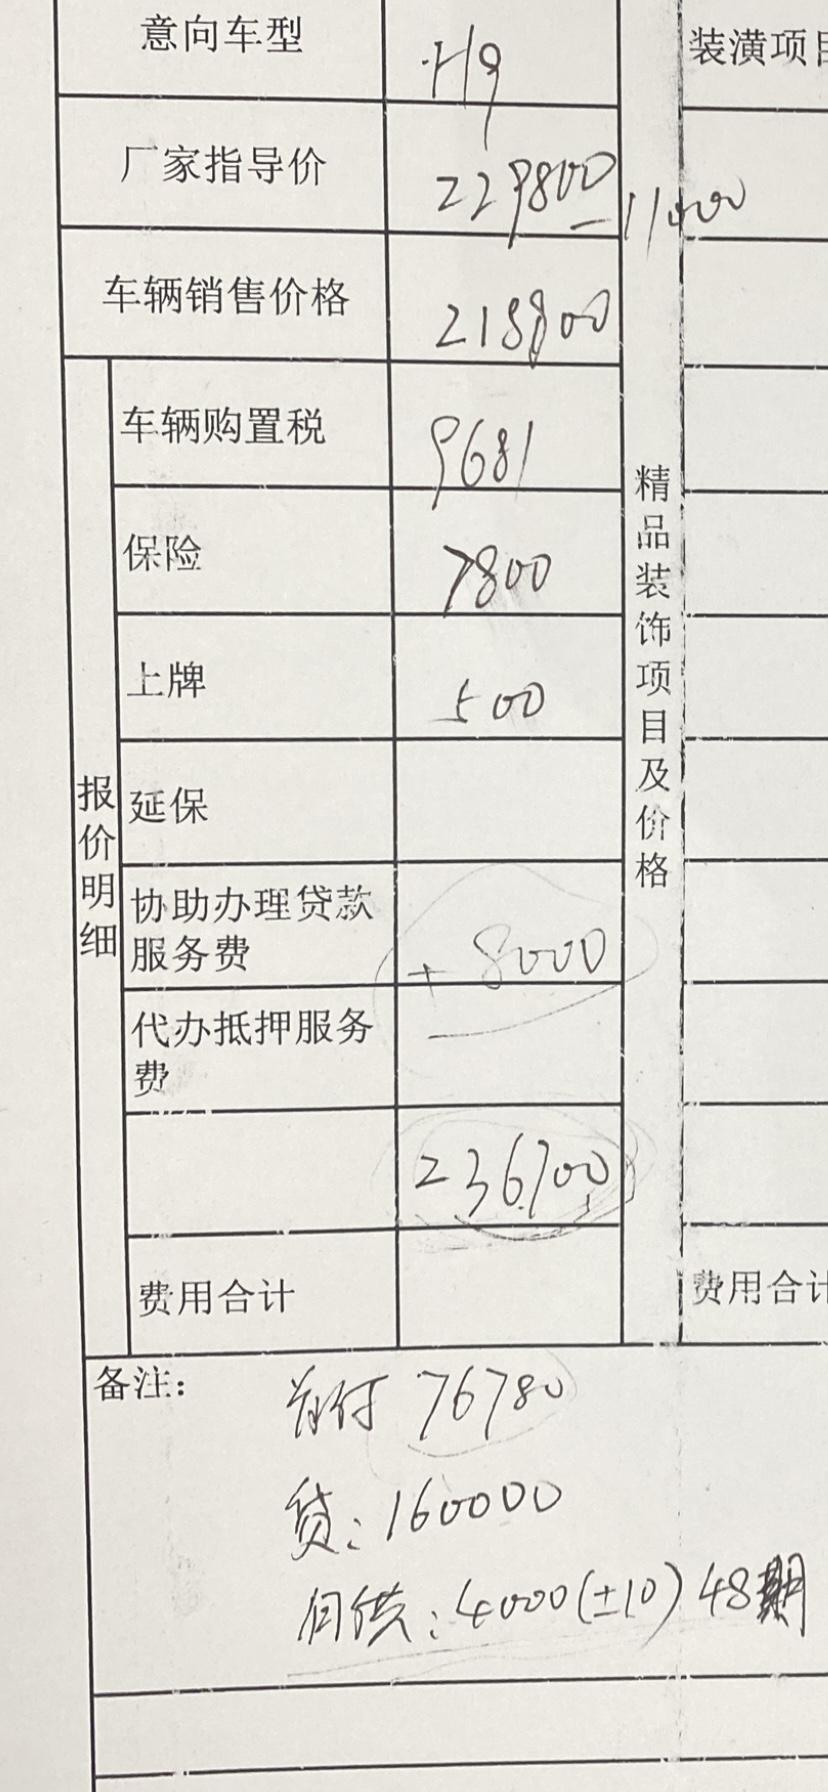 意向车型 H9 装潢项目
厂家指导价 229800 -11000
车辆销售价格 218800
报价明细
车辆购置税 9681
保险 7800
上牌 500
延保
协助办理贷款服务费 +8000
代办抵押服务费 —
236700
费用合计
精品装饰项目及价格
费用合计
备注:
首付 76780
贷:160000
月供:4000(±10)48期